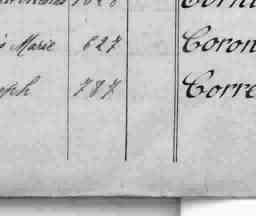 s Marie 627 Coron
eph 787 Corre